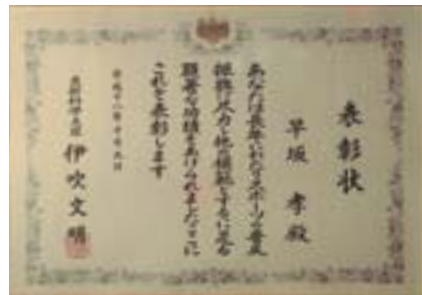 表彰状
早坂 孝殿
あなたは長年にわたりスポーツの普及
振興に尽力し他の模範とするに足る
顕著な功績をあげられましたここに
これを表彰します
平成十八年十月九日
文部科学大臣 伊吹文明